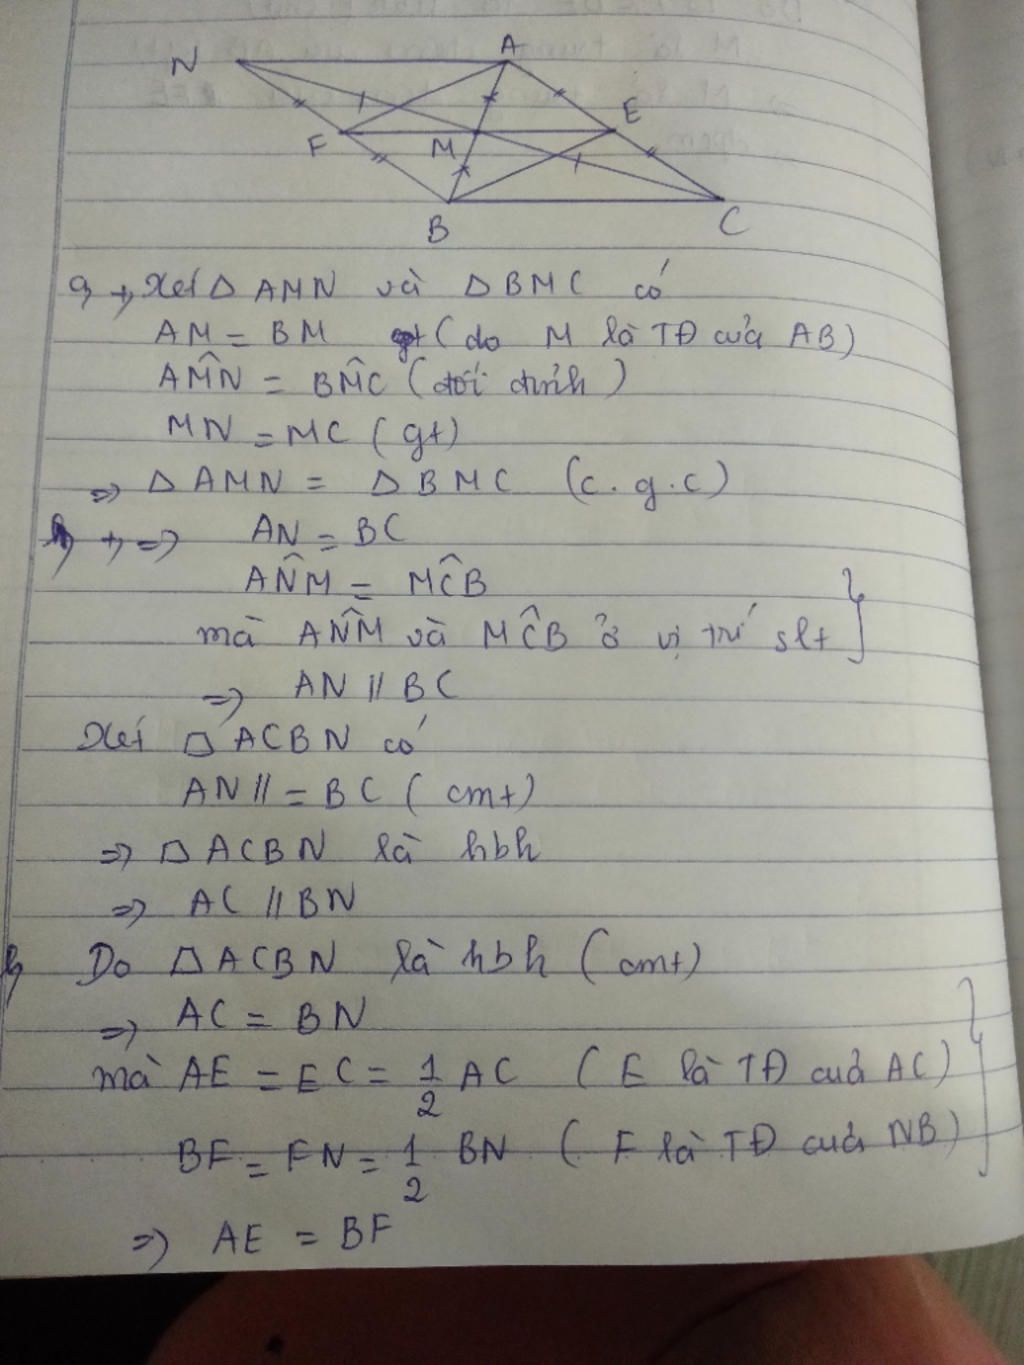 N A
F M E
B C
a, +, Xét △ AMN và △ BMC có
AM = BM (do M là TĐ của AB)
AM̂N = BM̂C (đối đỉnh)
MN = MC (gt)
=> △ AMN = △ BMC (c.g.c)
+, => AN = BC
AN̂M = MĈB
mà AN̂M và MĈB ở vị trí slt
=> AN // BC
Xét ▱ ACBN có
AN // = BC (cmt)
=> ▱ ACBN là hbh
=> AC // BN
b, Do ▱ ACBN là hbh (cmt)
=> AC = BN
mà AE = EC = 1/2 AC (E là TĐ của AC)
BF = FN = 1/2 BN (F là TĐ của NB)
=> AE = BF